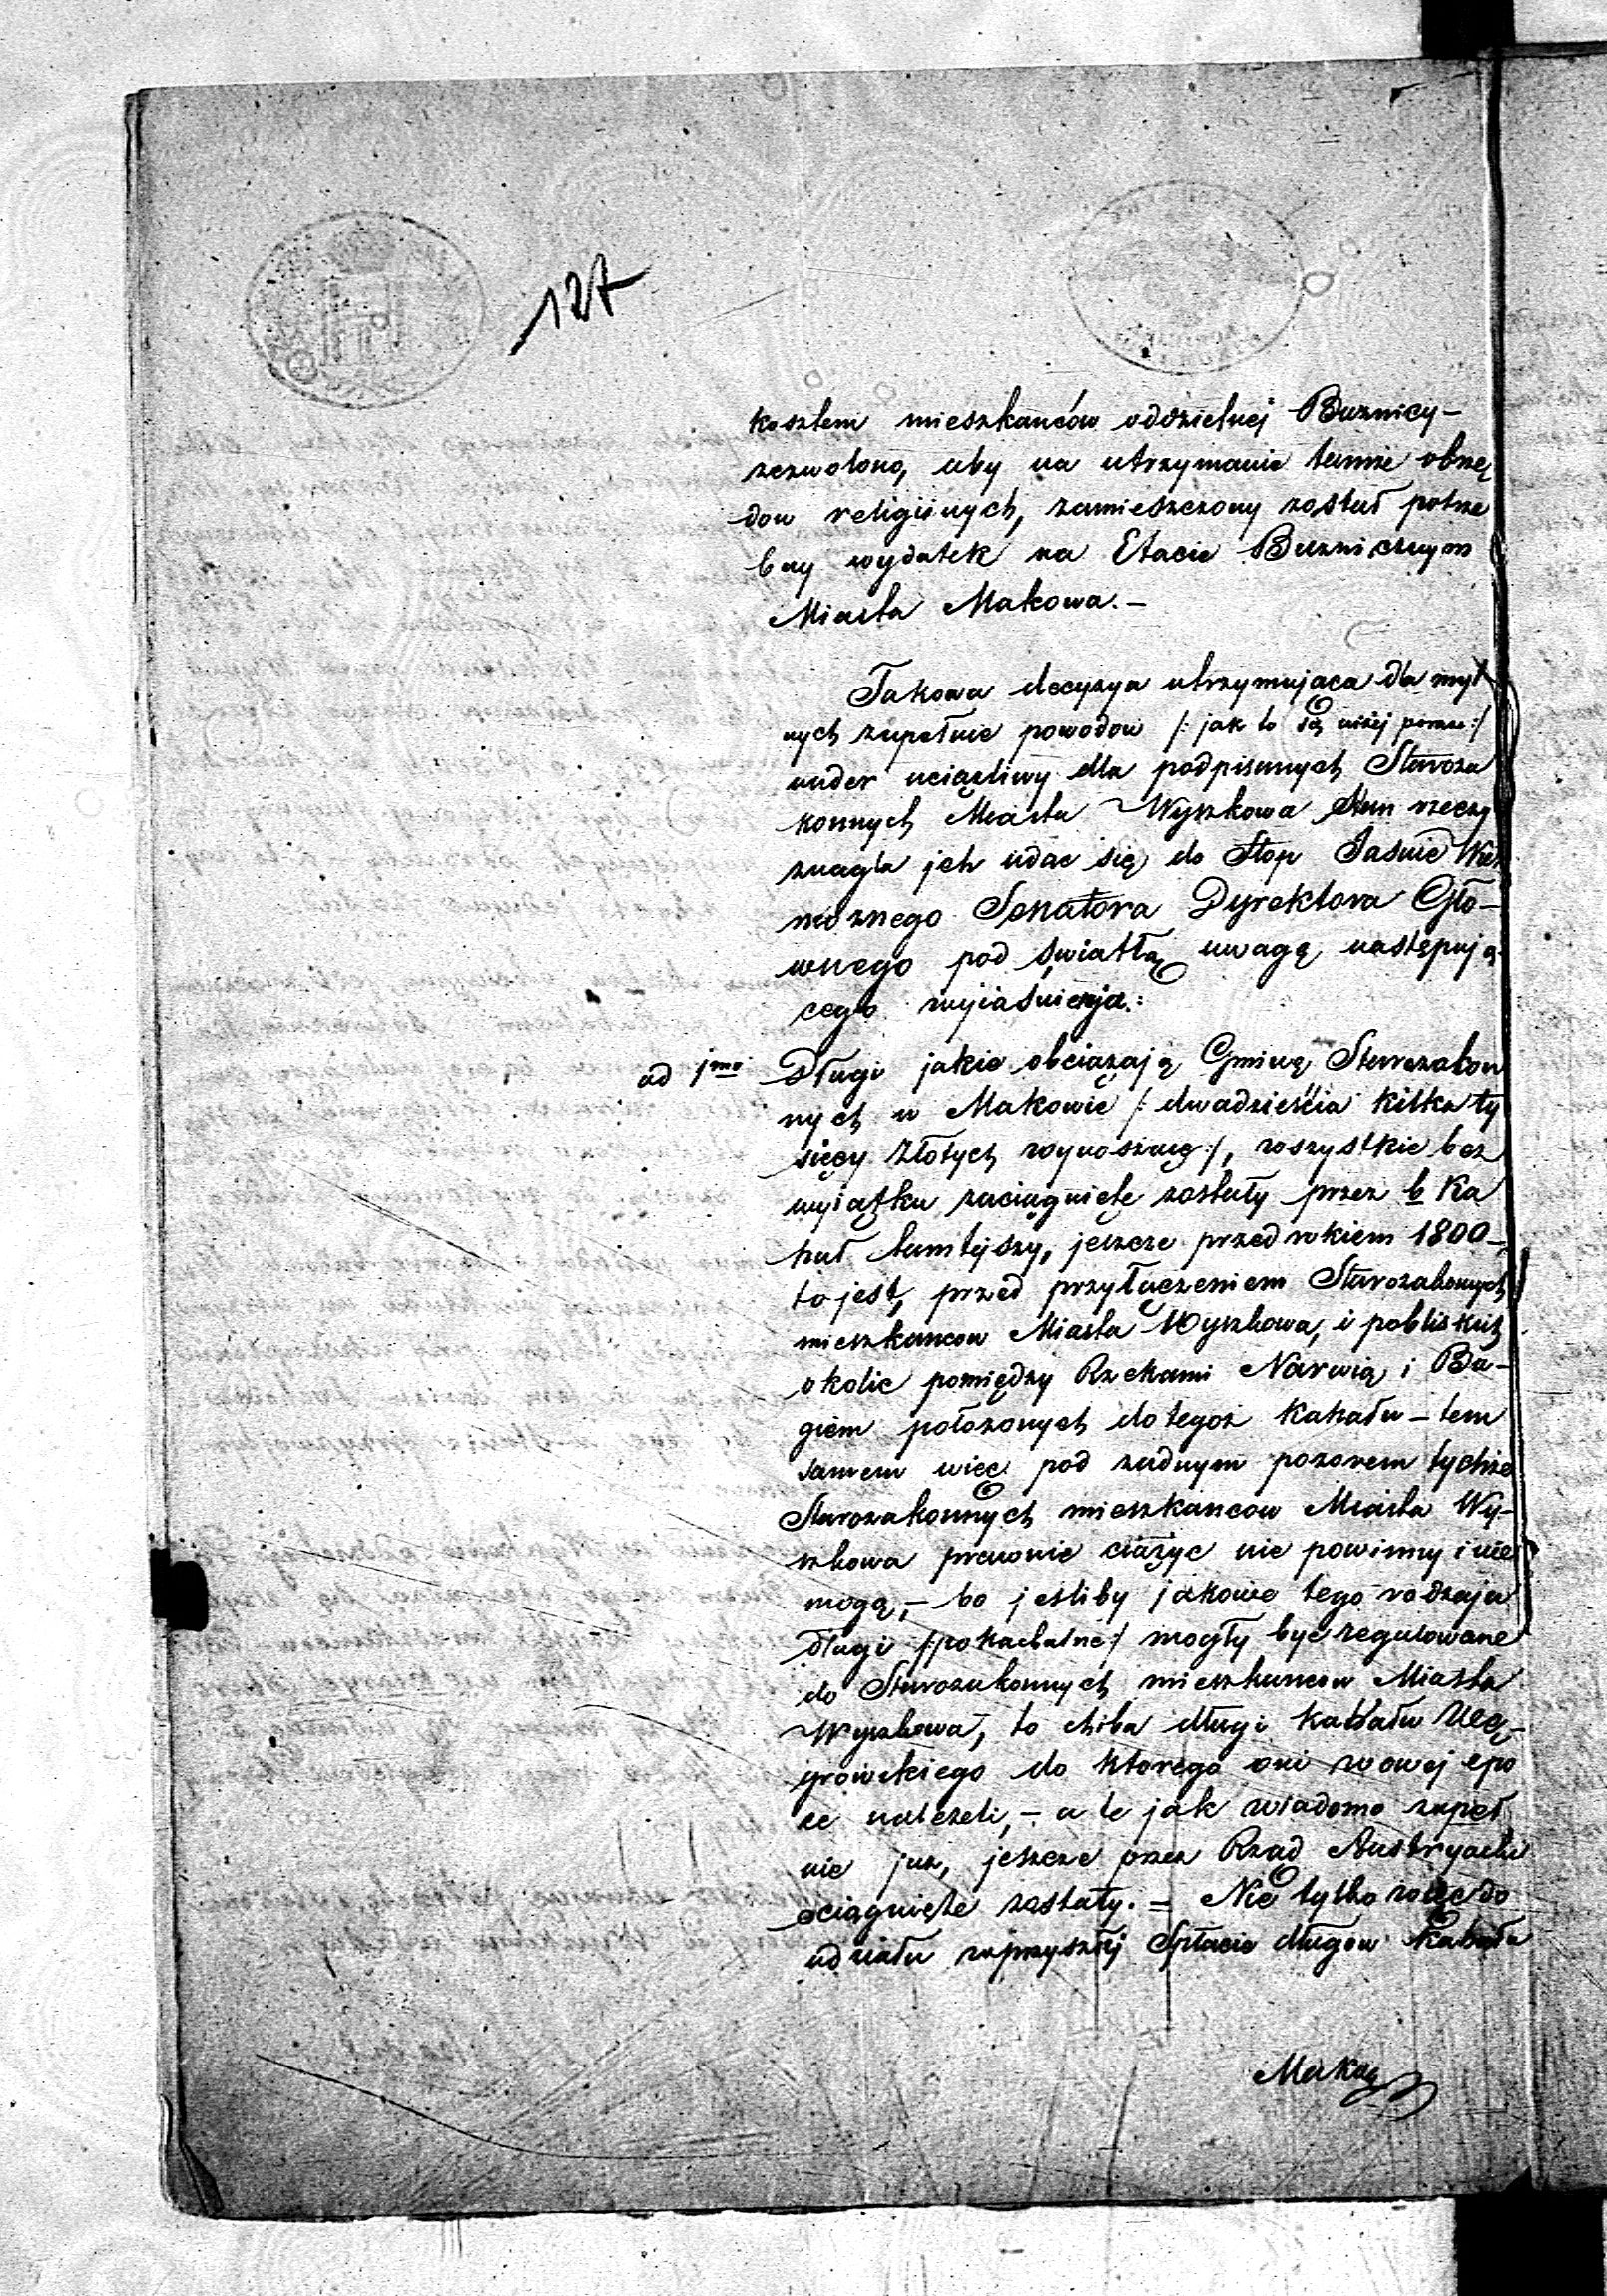 127
kosztem mieszkańców oddzielnej Buznicy –
zezwolono, aby na utrzymanie tamże obrzę
dow religiinych, zamieszczony został potrze
bny wydatek na Etacie Buznicznym
Miasta Makowa. –
Takowa decyzya utrzymująca dla myl
nych zupełnie powodow /: jak to się niżej :/
nader uciążliwy dla podpisanych Staroza
konnych Miasta Wyszkowa stan rzeczy
znagla ich udac się do Stop Jasnie Wiel
możnego Senatora Dyrektora Głó –
wnego pod światłą uwagę następują
cego wyiaśnienja :
ad 1mo Długi jakie obciązają Gminę Starozakon
nych w Makowie /: dwadzieścia kilka ty
sięcy Złotych wynoszące :/, wszystkie bez
wyiątku zaciągnięte zostały przez b Ka
hał tamtejszy, jeszcze przed rokiem 1800 –
to jest, przed przyłączeniem Starozakonnych
mieszkancow Miasta Wyszkowa, i pobliskich
okolic pomiędzy Rzekami Narwią i Bu –
giem położonych do tegoż Kahału – tem
samem więc pod żadnym pozorem tychże
Starozakonnych mieszkancow Miasta Wy –
szkowa prawnie ciążyc nie powinny i nie
mogą, – bo jesliby jakowe tego rodzaju
długi /: pokachalne :/ mogły być regulowane
do Starozakonnych mieszkancow Miasta
Wyszkowa, to chiba długi kahału Wę –
growskiego do ktorego oni w owej epo
ce należeli, – a te jak wiadomo zupeł
nie juz, jeszcze przez Rząd Austryacki
ociągnięte zostały. = Nie tylko więc do
udziału w przyszłej Spłacie długow Kahału
Makow